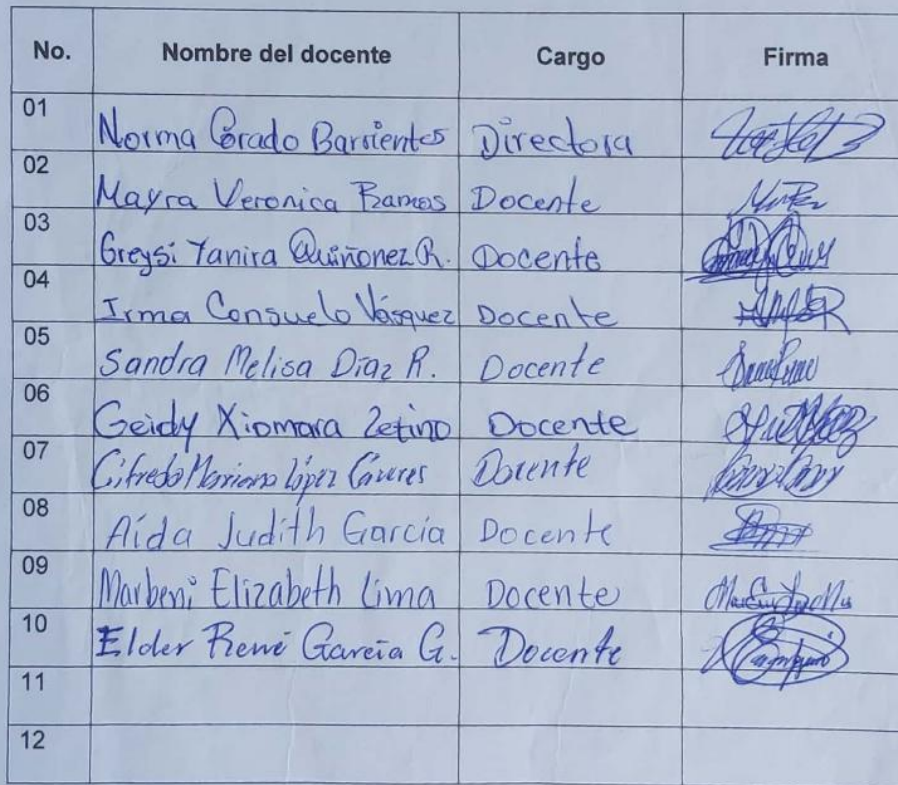 No. Nombre del docente Cargo Firma
01 Norma Corado Barrientos Directora
02 Mayra Veronica Ramos Docente
03 Greysi Yanira Quiñonez R. Docente
04 Irma Consuelo Vásquez Docente
05 Sandra Melisa Díaz R. Docente
06 Geidy Xiomara Zetino Docente
07 Mariano López Docente
08 Aída Judith García Docente
09 Marbeni Elizabeth Lima Docente
10 Elder René García G. Docente
11
12